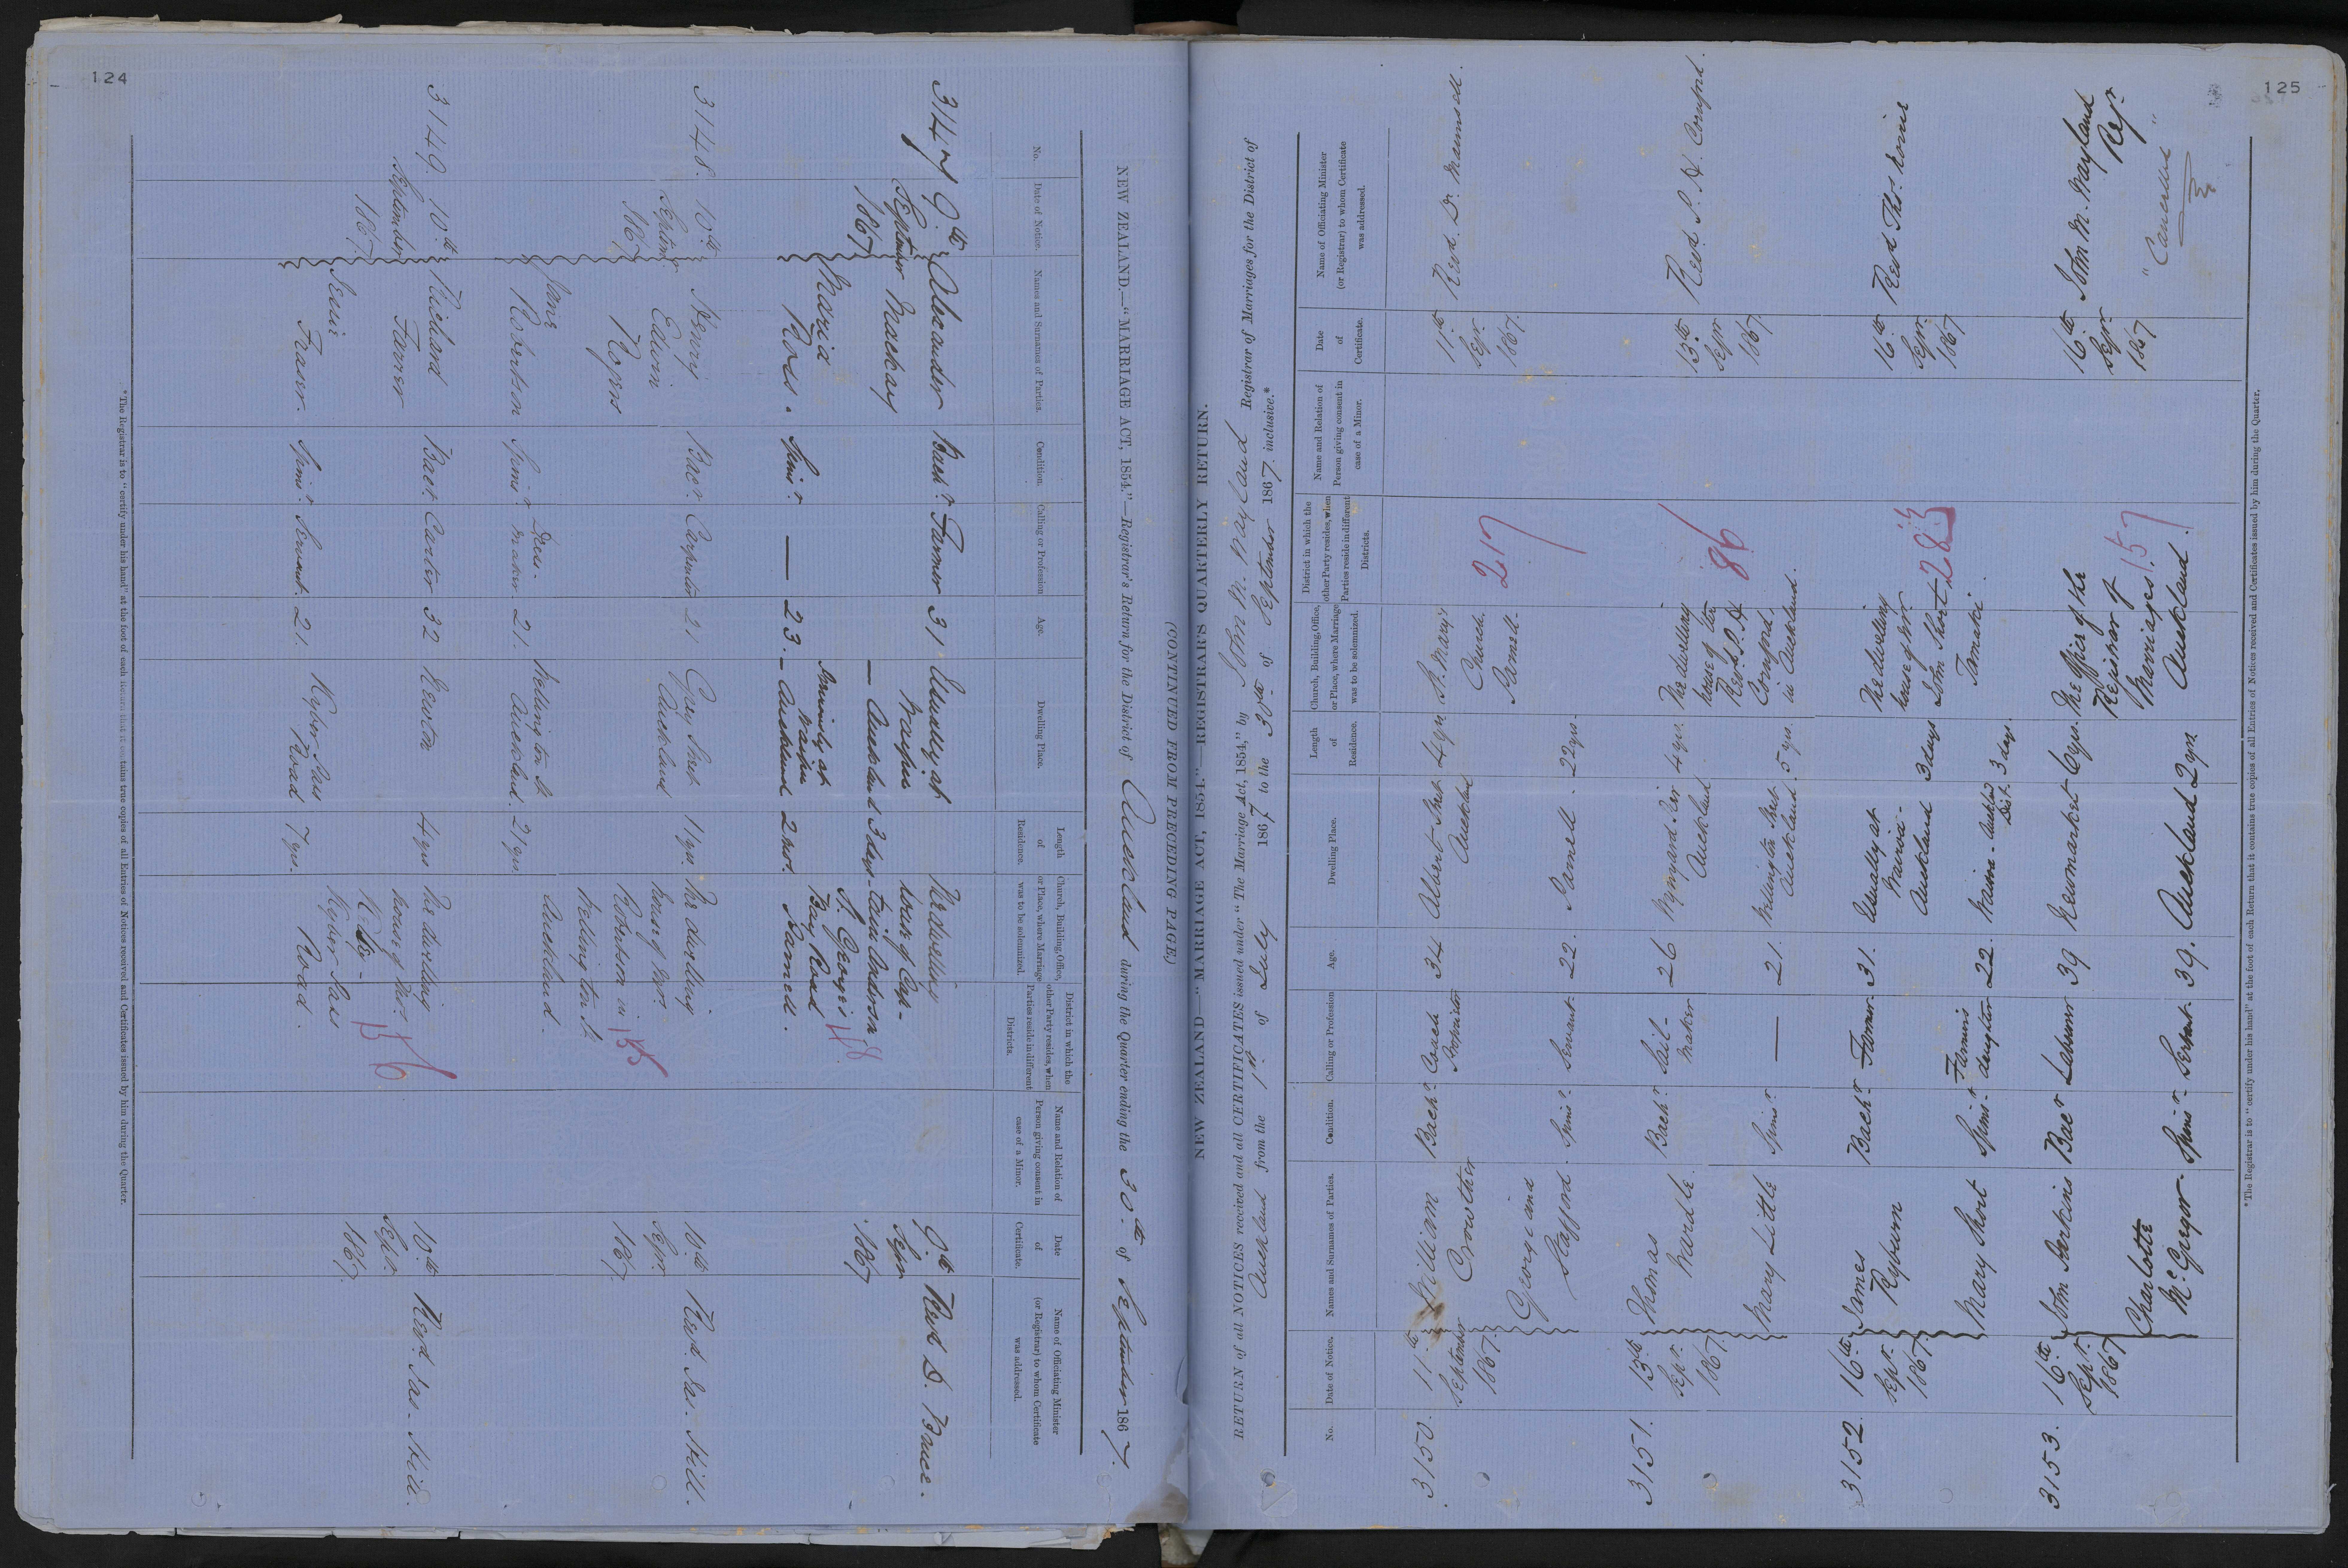 124
NEW ZEALAND.—"MARRIAGE ACT, 1854."—Registrar's Return for the District of Auckland during the Quarter ending the 30th of September 1867.
(CONTINUED FROM PRECEDING PAGE.)
No.
Date of Notice.
Names and Surnames of Parties.
Condition.
Calling or Profession
Age.
Dwelling Place.
Length of Residence.
Church, Building, Office, or Place, where Marriage was to be solemnized.
District in which the other Party resides, when Parties reside in different Districts.
Name and Relation of Person giving consent in case of a Minor.
Date of Certificate.
Name of Officiating Minister (or Registrar) to whom Certificate was addressed.
3147 9th Alexander Bachr. Farmer 31 Usually at The dwelling 9th Revd. D. Bruce.
September Mackay Waipu house of Cap- Sepr
1867 — Auckland 3 days - tain 1867
Formerly at St. George's 118
Maria Waipu Bay Road
Ross. Spinsr. — 23. — Auckland 2 mos. Parnell.
3148. 10th Henry Bacr. Carpenter 21 Grey Street 11 yrs. The dwelling 10th Revd. Jas. Hill.
Septemr. Edwin Auckland house of Mrs. Sepr.
1867 Rogers Robertson in 155 1867.
Jane Dress- Wellington St
Robertson Spinsr. maker 21. Wellington St Auckland. 21 yrs. Auckland.
3149. 10th Richard Bacr Carter 32 Newton 4 yrs The dwelling 10th Revd. Jas. Hill.
September Farrer house of Mrs. 156 Sepr
1867. Kyber Pass 1867.
Jessie Road.
Fraser. Spinsr. Servant. 21. Kyber Pass Road 7 yrs.
*The Registrar is to "certify under his hand" at the foot of each Return that it contains true copies of all Entries of Notices received and Certificates issued by him during the Quarter.
125
NEW ZEALAND—"MARRIAGE ACT, 1854."—REGISTRAR'S QUARTERLY RETURN.
RETURN of all NOTICES received and all CERTIFICATES issued under "The Marriage Act, 1854," by John M. Wayland Registrar of Marriages for the District of
Auckland from the 1st of July 1867 to the 30th of September 1867. inclusive.*
No.
Date of Notice.
Names and Surnames of Parties.
Condition.
Calling or Profession
Age.
Dwelling Place.
Length of Residence.
Church, Building, Office, or Place, where Marriage was to be solemnized.
District in which the other Party resides, when Parties reside in different Districts.
Name and Relation of Person giving consent in case of a Minor.
Date of Certificate.
Name of Officiating Minister (or Registrar) to whom Certificate was addressed.
3150. 11th William Bachr. Coach 34 Albert Street 4 yrs St. Mary's 11th Revd. Dr. Maunsell.
September Crowther Proprietor Auckland Church. 217 Sepr.
1867. Parnell. 1867.
Georgiand
Stafford. Spinsr. Servant. 22. Parnell. 22 yrs.
3151. 13th Thomas Bachr Sail- 26 Wynyard Pier 4 yrs. The dwelling 13th Revd. P. H. Cornford.
Sepr. Wardle. maker Auckland house of the 86 Sepr
1867. Revd. P. H. 1867
Mary Little Spinsr — 21. Wellington Street Auckland. 5 yrs. Cornford, in Auckland.
3152. 16th James Bachr. Farmer 31. Usually at The dwelling 16th Revd Thos. Norrie
Sepr. Ryburn Wairoa - house of Mr. 283 Sepr.
1867. Auckland 3 days John Short 1867
Tamaki.
Mary Short Spinsr Farmer's daughter 22. Auckland Dist. 3 days.
3153. 16th John Jerkins Bacr Labourer 39 Newmarket 6 yrs. The Office of the 16th John M. Wayland
Sepr. Registrar of Sepr. Regr.
1867 Marriages. 157 1867
Charlotte Auckland. "Cancelled"
McGregor. Spinsr. Servant. 39. Auckland 2 yrs.
*The Registrar is to "certify under his hand" at the foot of each Return that it contains true copies of all Entries of Notices received and Certificates issued by him during the Quarter.